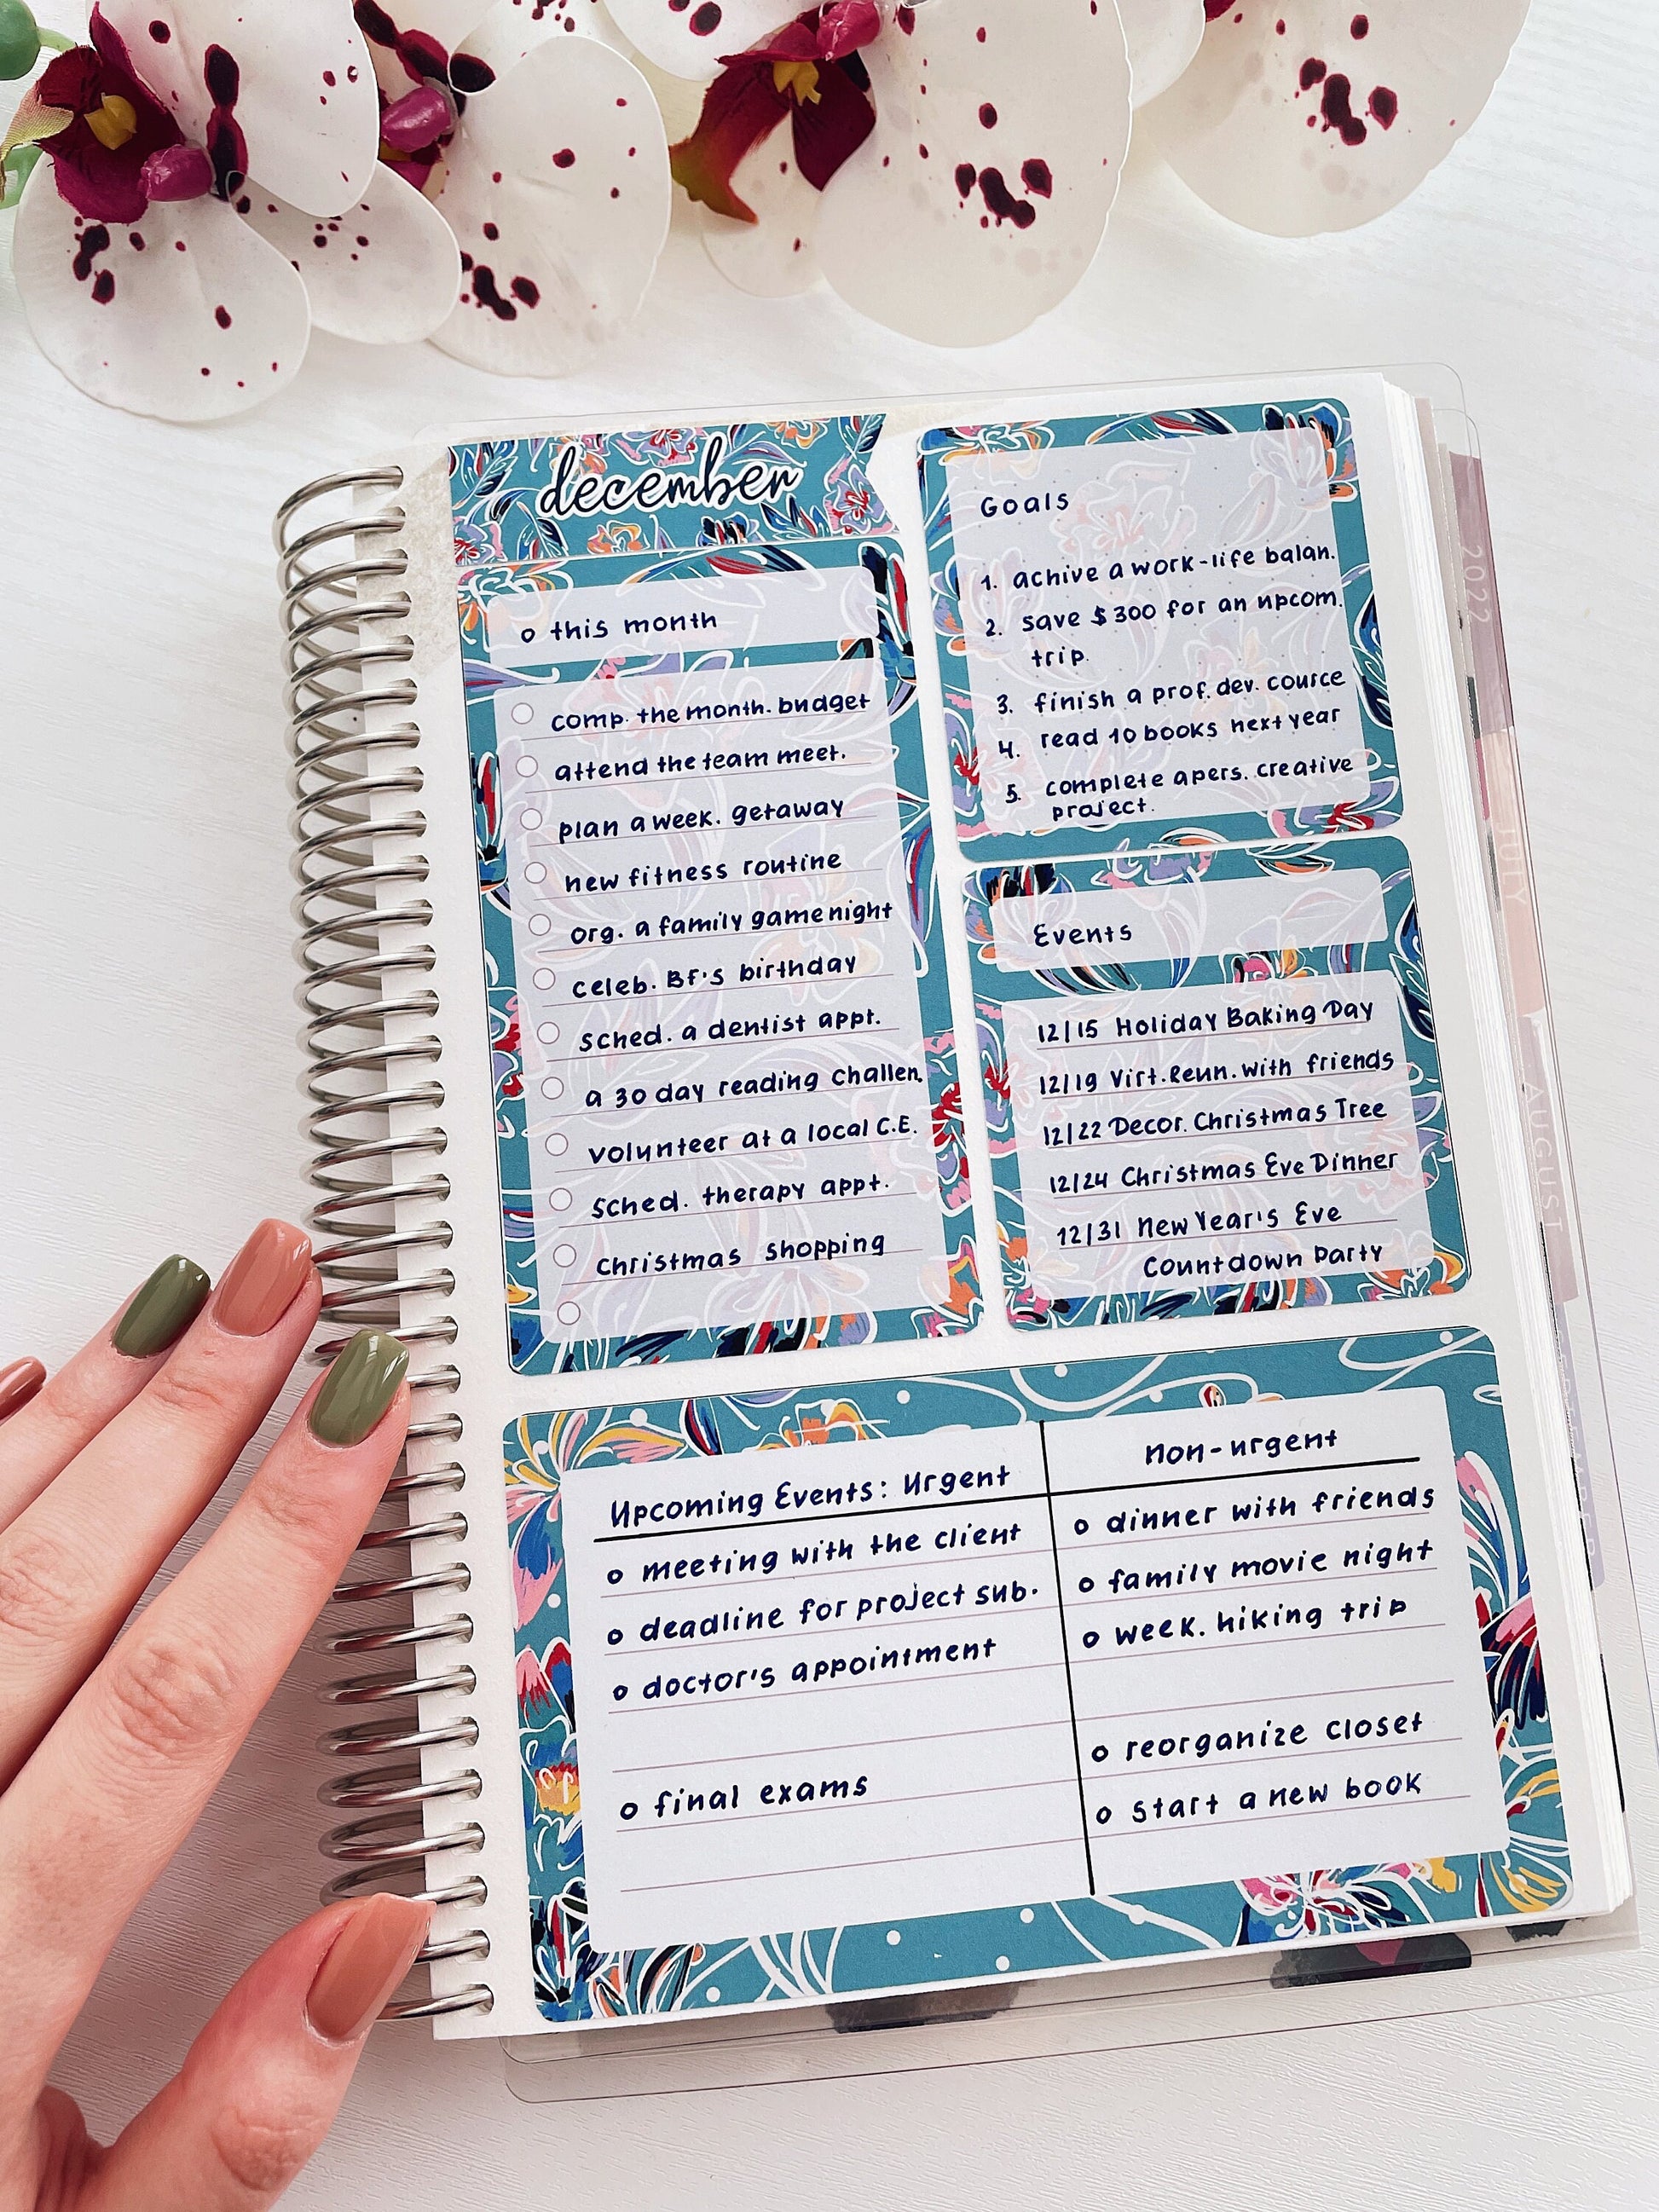 december
o this month
comp. the month. budget
attend the team meet.
plan a week. getaway
new fitness routine
org. a family game night
celeb. BF's birthday
sched. a dentist appt.
a 30 day reading challen.
volunteer at a local C.E.
sched. therapy appt.
christmas shopping
Goals
1. achive a work-life balan.
2. save $300 for an upcom.
trip.
3. finish a prof. dev. cource
4. read 10 books next year
5. complete a pers. creative
project.
Events
12/15 Holiday Baking Day
12/19 Virt. Reun. with friends
12/22 Decor. Christmas Tree
12/24 Christmas Eve Dinner
12/31 New Year's Eve
Countdown Party
Upcoming Events: Urgent
o meeting with the client
o deadline for project sub.
o doctor's appointment
o final exams
non-urgent
o dinner with friends
o family movie night
o week. hiking trip
o reorganize closet
o start a new book
2022
JULY
AUGUST